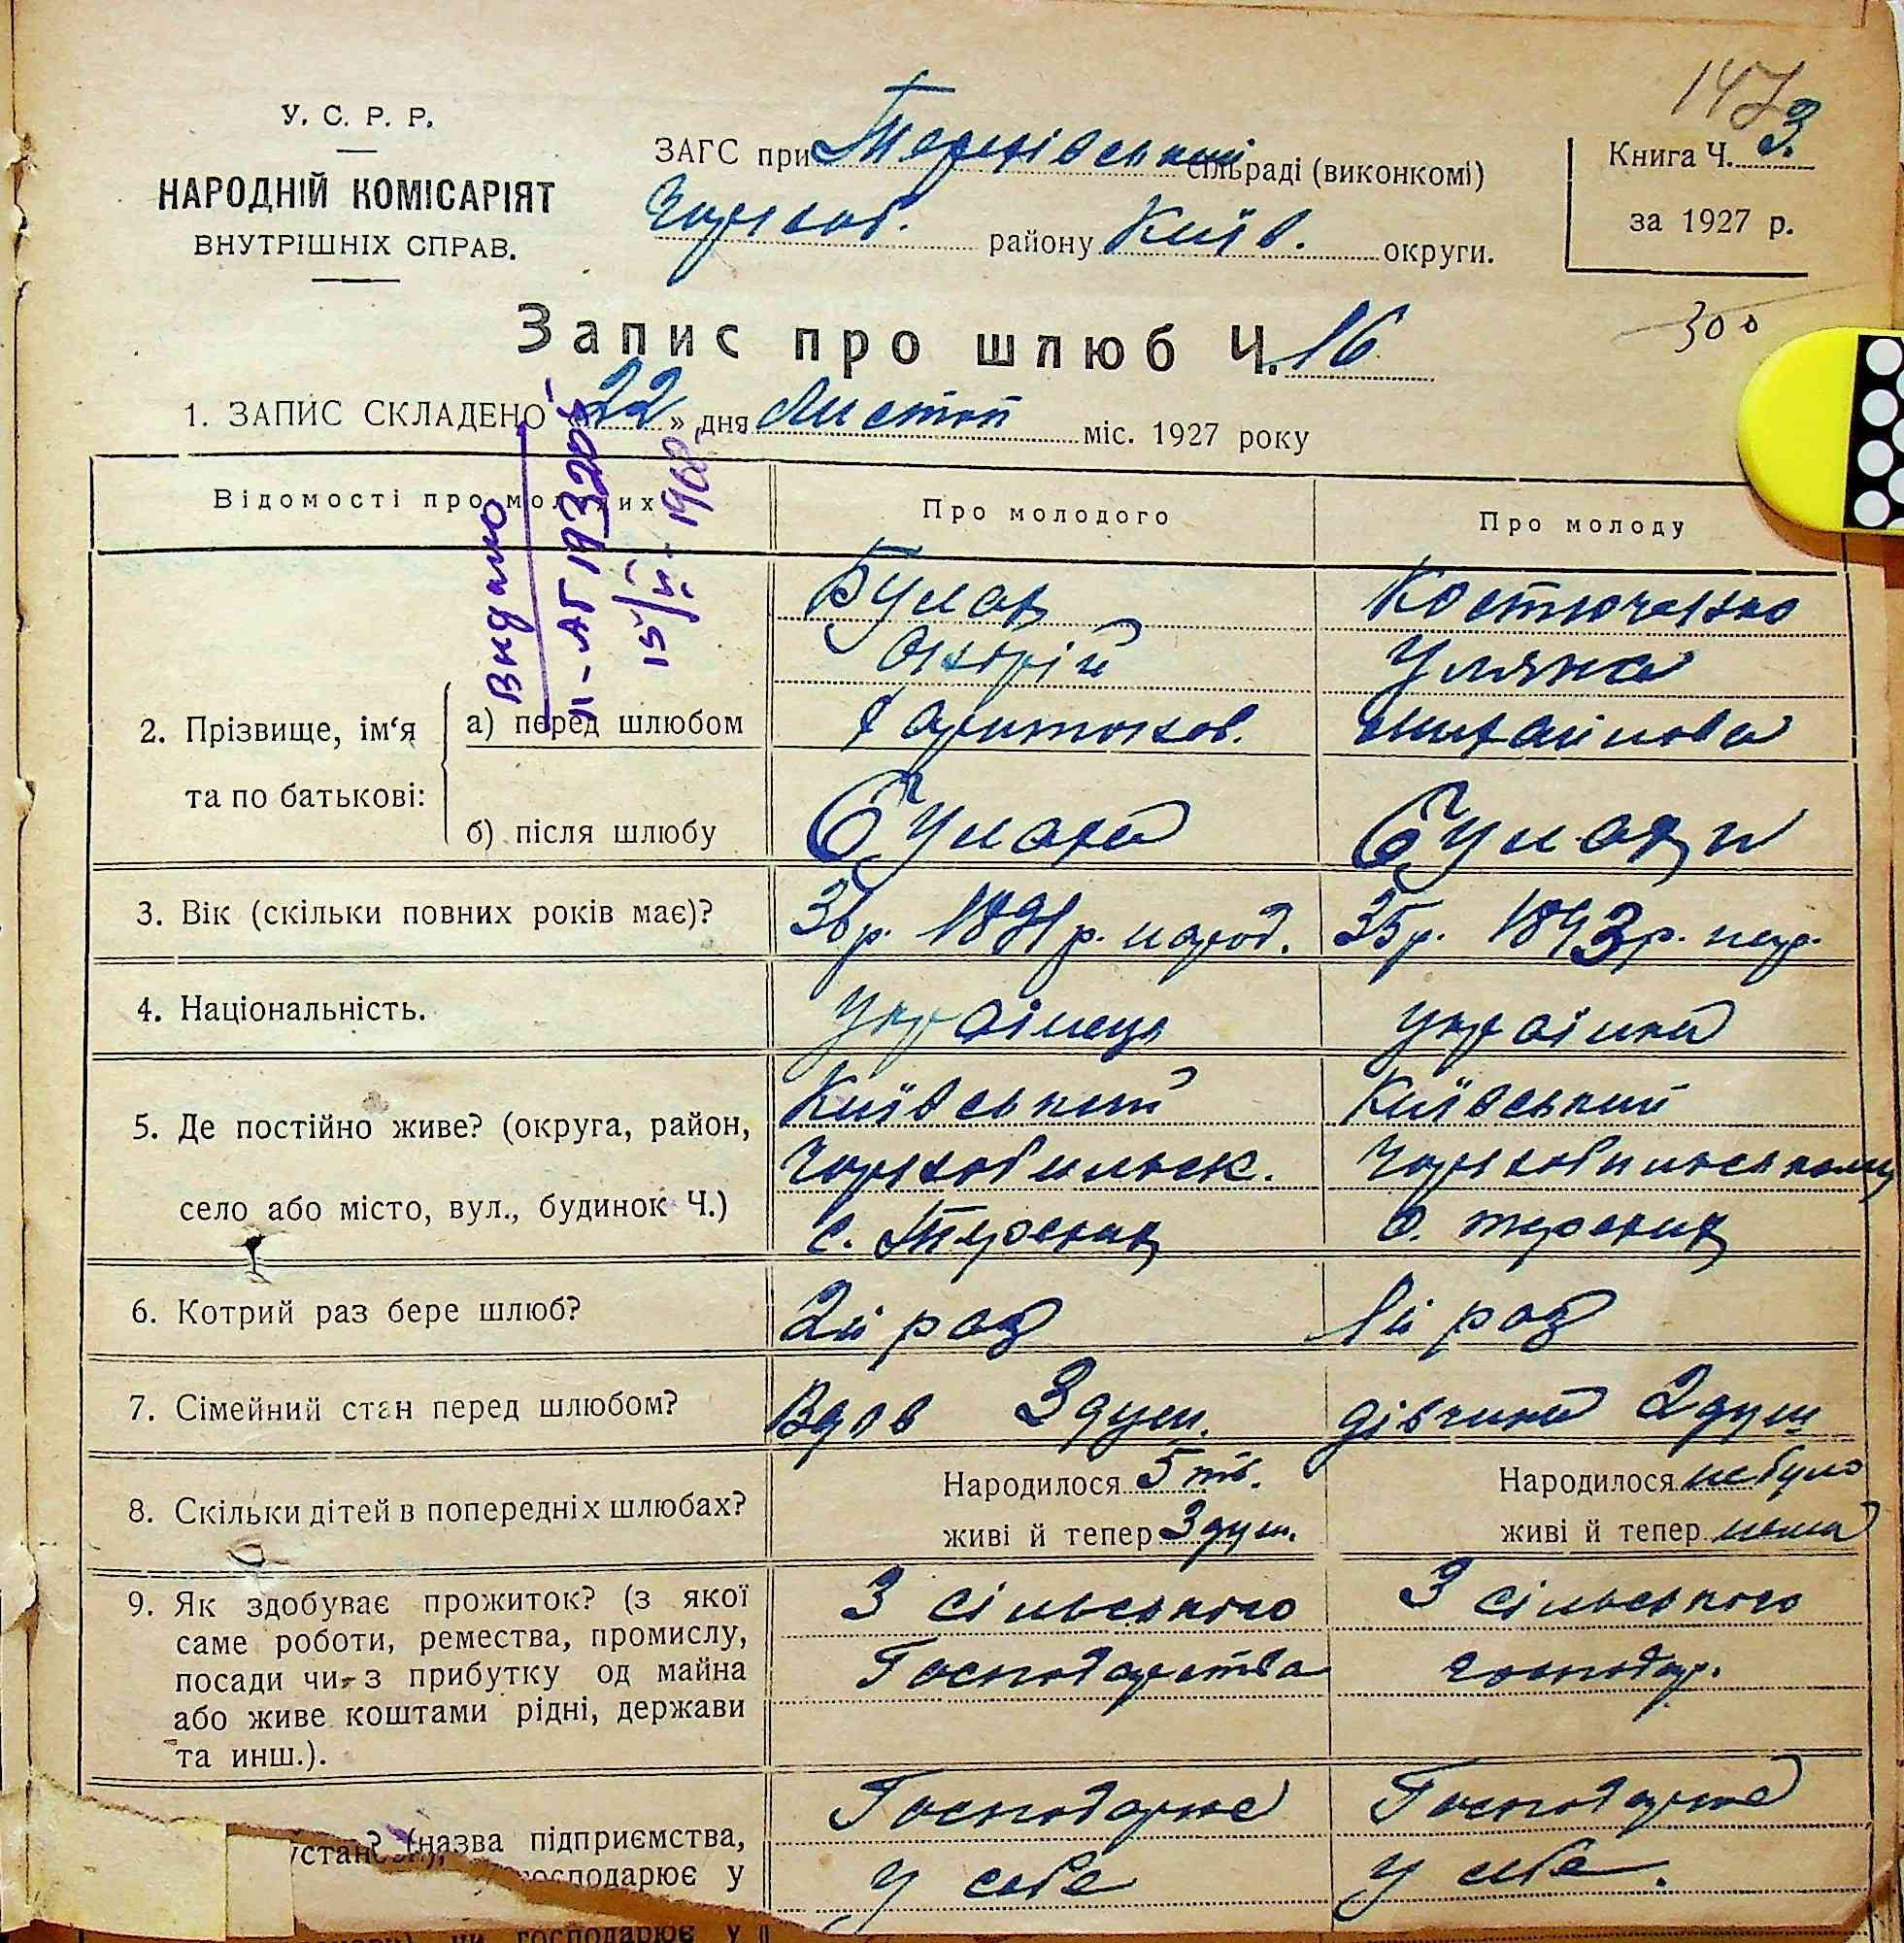 147
У. С. Р. Р.
НАРОДНІЙ КОМІСАРІЯТ
ВНУТРІШНІХ СПРАВ.
ЗАГС при Теремівський сільраді (виконкомі)
Чорноб. району Київ. округи.
Книга Ч. 3.
за 1927 р.
300
Запис про шлюб Ч. 16
1. ЗАПИС СКЛАДЕНО «22» дня Листоп міс. 1927 року
Видано
15/V - 1968
Відомості про молодих
Про молодого
Про молоду
2. Прізвище, ім‘я та по батькові:
а) перед шлюбом
Булах
Андрій
Харитонов.
Костюченко
Уляна
Михайлова
б) після шлюбу
Булах
3. Вік (скільки повних років має)?
36 р. 1891 р. народ.
35 р. 1893 р. нар.
4. Національність.
українець
українка
5. Де постійно живе? (округа, район,
село або місто, вул., будинок Ч.)
Київський
Чорнобильск.
с. Теремці
Київський
Чорнобильському
с. теремці
6. Котрий раз бере шлюб?
2й раз
1й раз
7. Сімейний стан перед шлюбом?
Вдов 3 душ.
дівчина 2 душ
8. Скільки дітей в попередніх шлюбах?
Народилося 5
живі й тепер 3 душ.
Народилося небуло
живі й тепер нема
9. Як здобуває прожиток? (з якої
саме роботи, ремества, промислу,
посади чи з прибутку од майна
або живе коштами рідні, держави
та инш.).
З сільського
Господарства
З сільського
господар.
(назва підприємства,
господарює у
Господарює
у себе
Господарює
у себе.
чи господарює у